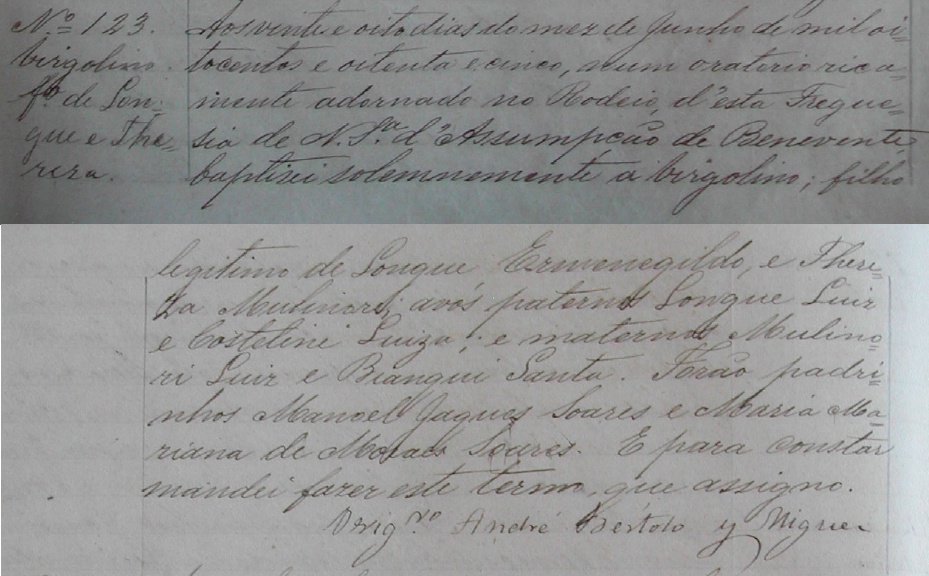 Nº 123.
Virgolino.
fº de Lon-
gue e The=
reza.
Aos vinte e oito dias do mez de Junho de mil oi=
tocentos e oitenta e cinco, num oratorio rica=
mente adornado no Rodeio, d'esta Fregue=
sia de N. Srª d'Assumpção de Benevente,
baptisei solemnemente a Virgolino; filho
legitimo de Longue Ermenegildo, e There=
za Mulinori; avós paternos Longue Luiz
e Costelini Luiza; e maternos Mulino=
ri Luiz e Biangui Santa. Forão padri=
nhos Manoel Jaques Soares e Maria Ma=
riana de Moraes Soares. E para constar
mandei fazer este termo, que assigno.
André Bertolo y Miguez